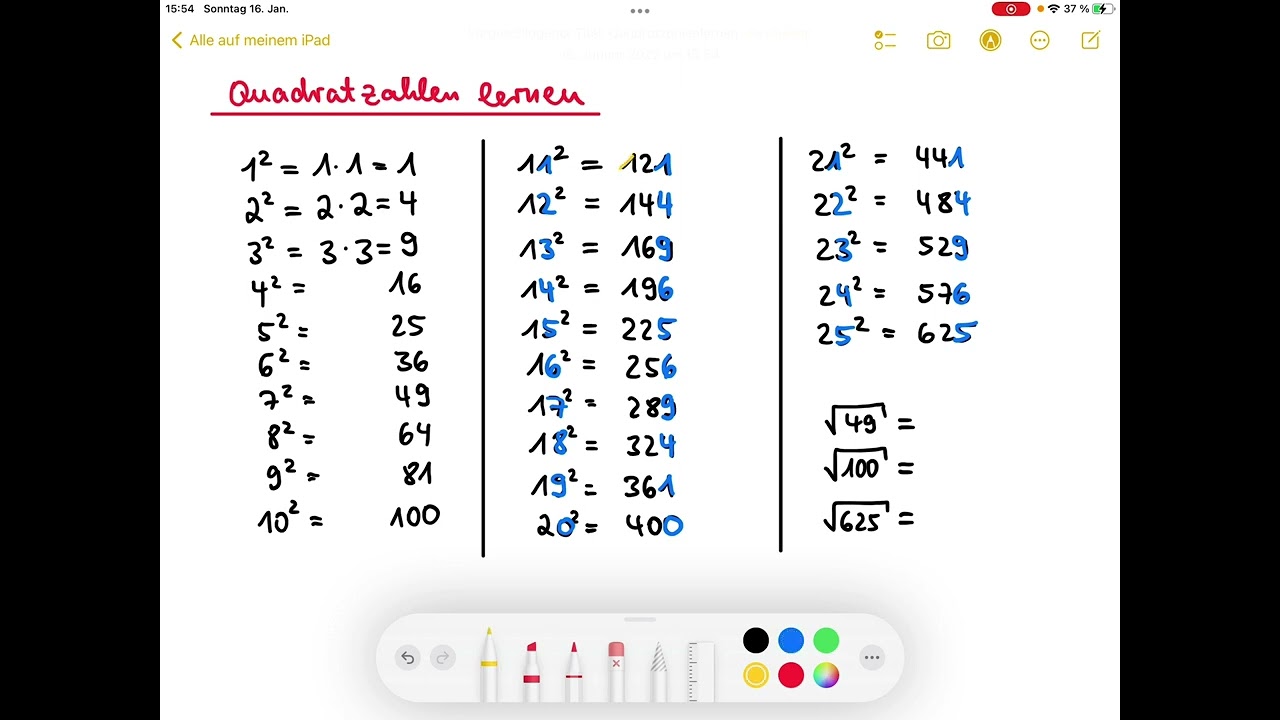 15:54 Sonntag 16. Jan.
37 %
Alle auf meinem iPad
Quadratzahlen lernen
1² = 1·1 = 1
2² = 2·2 = 4
3² = 3·3 = 9
4² = 16
5² = 25
6² = 36
7² = 49
8² = 64
9² = 81
10² = 100
11² = 121
12² = 144
13² = 169
14² = 196
15² = 225
16² = 256
17² = 289
18² = 324
19² = 361
20² = 400
21² = 441
22² = 484
23² = 529
24² = 576
25² = 625
√49 =
√100 =
√625 =